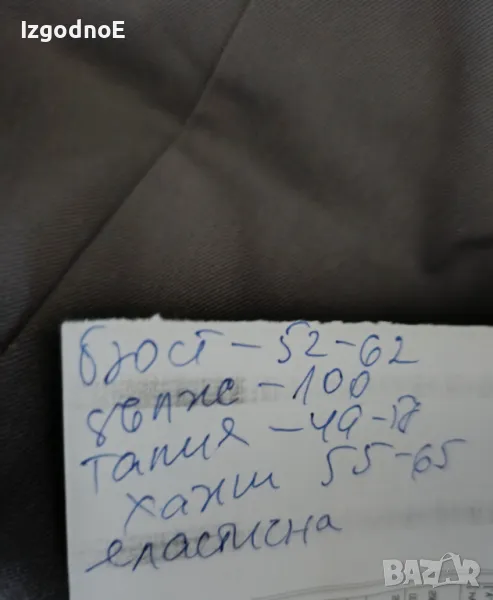 IzgodnoE
бюст - 52-62
дълж - 100
талия - 49-57
ханш 55-65
еластична
BAZAR